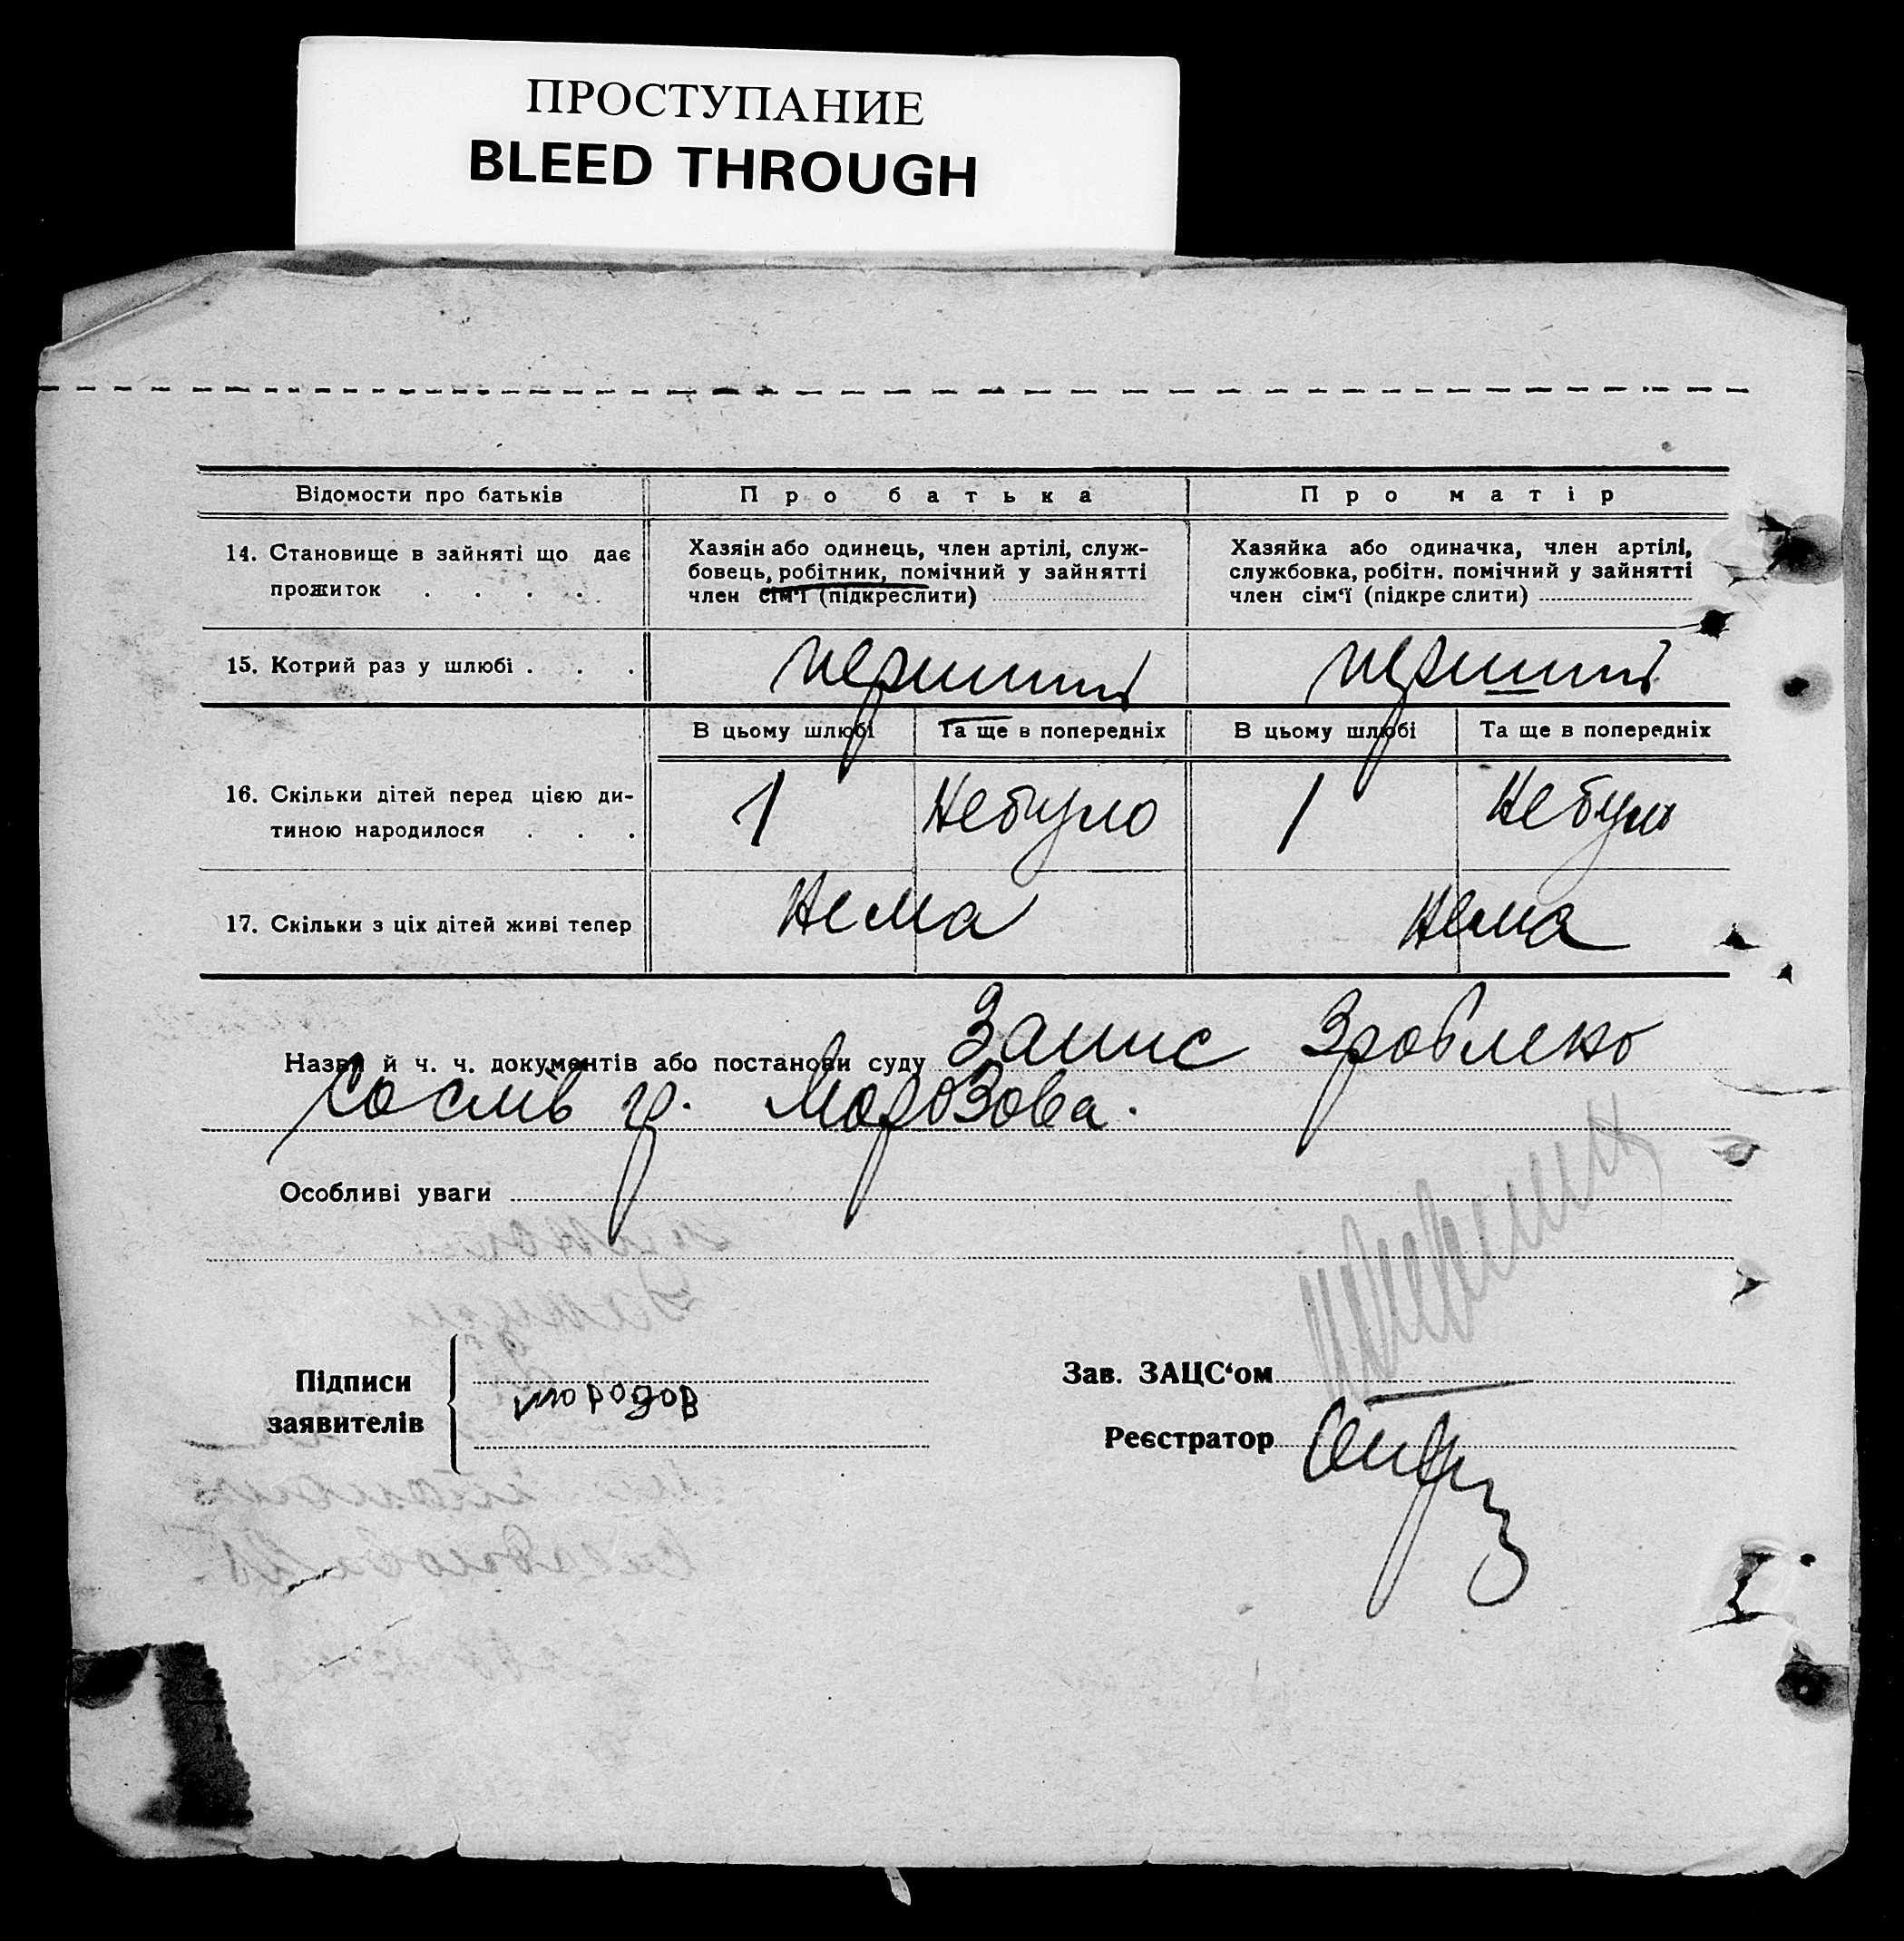 ПРОСТУПАНИЕ
BLEED THROUGH
Відомости про батьків
Про батька
Про матір
14. Становище в зайняті що дає
прожиток . . . .
Хазяін або одинець, член артілі, служ-
бовець, робітник, помічний у зайнятті
член сім'ї (підкреслити)
Хазяйка або одиначка, член артілі,
службовка, робітн. помічний у зайнятті
член сім'ї (підкре слити)
15. Котрий раз у шлюбі . . .
перший
перший
В цьому шлюбі
Та ще в попередніх
В цьому шлюбі
Та ще в попередніх
16. Скільки дітей перед цією ди-
тиною народилося . . .
1
Небуло
1
Небуло
17. Скільки з ціх дітей живі тепер
Нема
Нема
Назви й ч. ч. документів або постанови суду Запис Зроблено
Со слів гр. Морозова.
Особливі уваги
Підписи
заявителів
Зав. ЗАЦС‘ом
Реєстратор